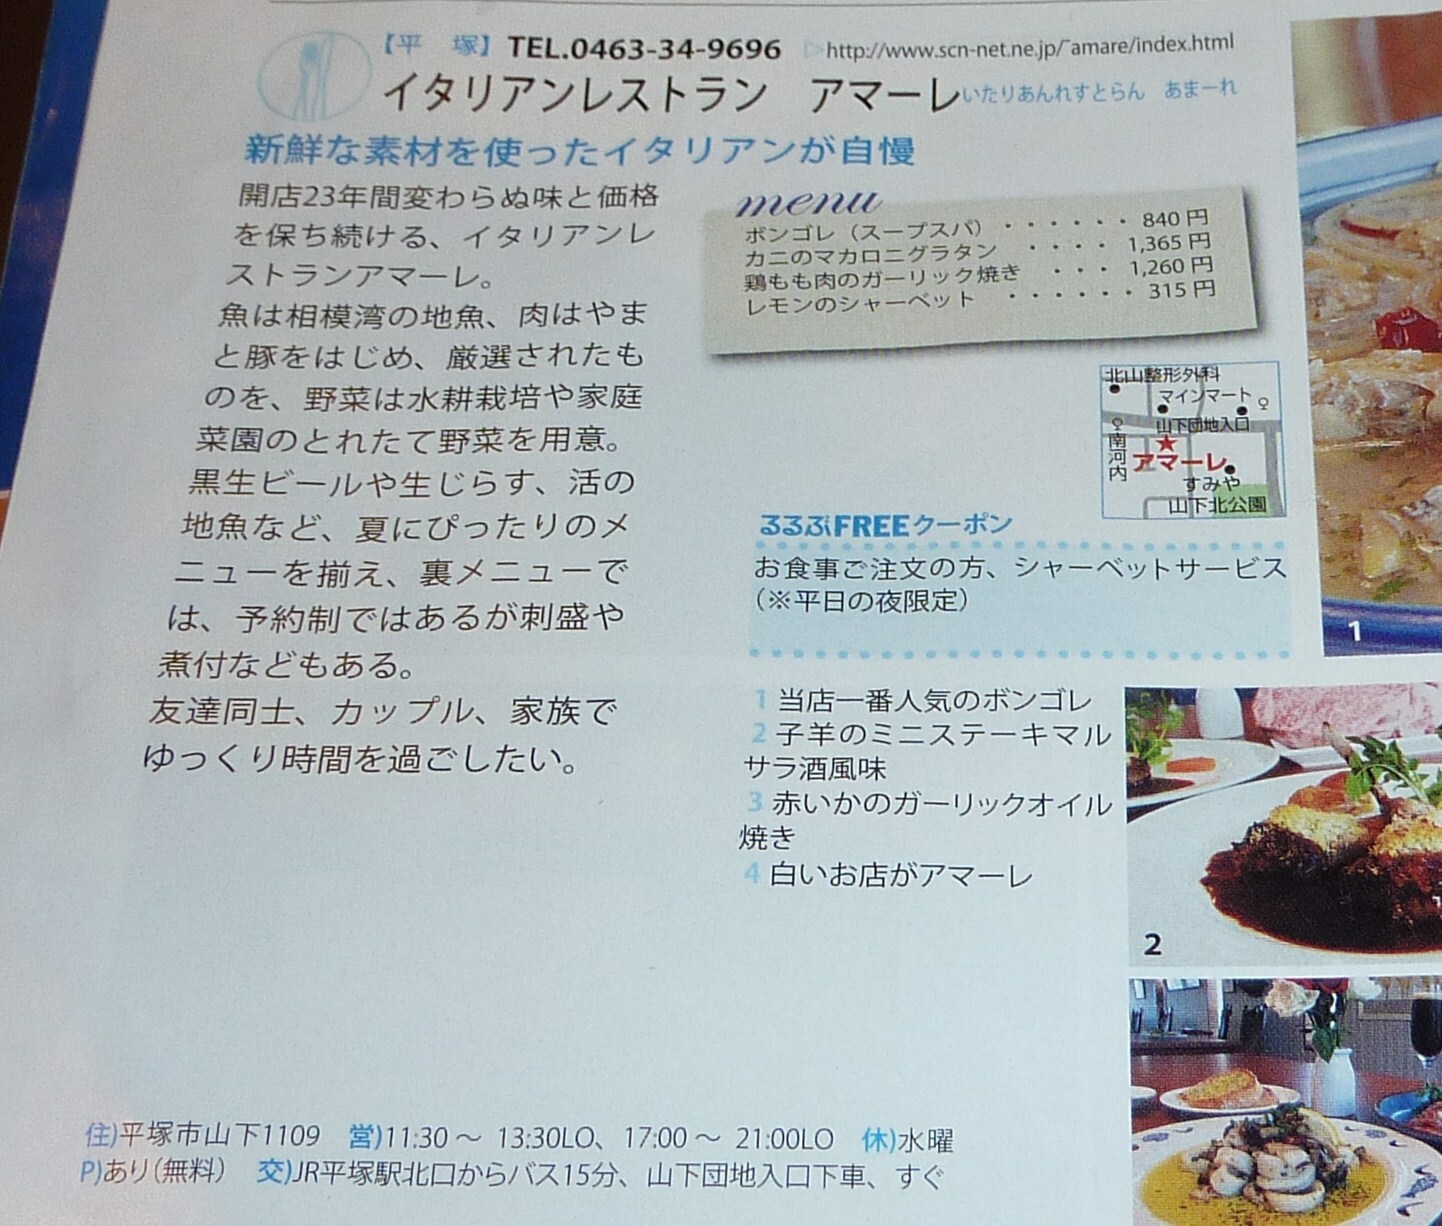 【平　塚】 TEL.0463-34-9696 ▷http://www.scn-net.ne.jp/~amare/index.html
イタリアンレストラン　アマーレ いたりあんれすとらん　あまーれ
新鮮な素材を使ったイタリアンが自慢
開店23年間変わらぬ味と価格
を保ち続ける、イタリアンレ
ストランアマーレ。
魚は相模湾の地魚、肉はやま
と豚をはじめ、厳選されたも
のを、野菜は水耕栽培や家庭
菜園のとれたて野菜を用意。
黒生ビールや生じらす、活の
地魚など、夏にぴったりのメ
ニューを揃え、裏メニューで
は、予約制ではあるが刺盛や
煮付などもある。
友達同士、カップル、家族で
ゆっくり時間を過ごしたい。
menu
ボンゴレ（スープスパ）・・・・・・840円
カニのマカロニグラタン　・・・・1,365円
鶏もも肉のガーリック焼き　・・・1,260円
レモンのシャーベット　・・・・・・315円
北山整形外科
マインマート
山下団地入口
南河内
アマーレ
すみや
山下北公園
るるぶFREEクーポン
お食事ご注文の方、シャーベットサービス
（※平日の夜限定）
1 当店一番人気のボンゴレ
2 子羊のミニステーキマル
サラ酒風味
3 赤いかのガーリックオイル
焼き
4 白いお店がアマーレ
1
2
住)平塚市山下1109　営)11:30〜13:30LO、17:00〜21:00LO　休)水曜
P)あり（無料）　交)JR平塚駅北口からバス15分、山下団地入口下車、すぐ